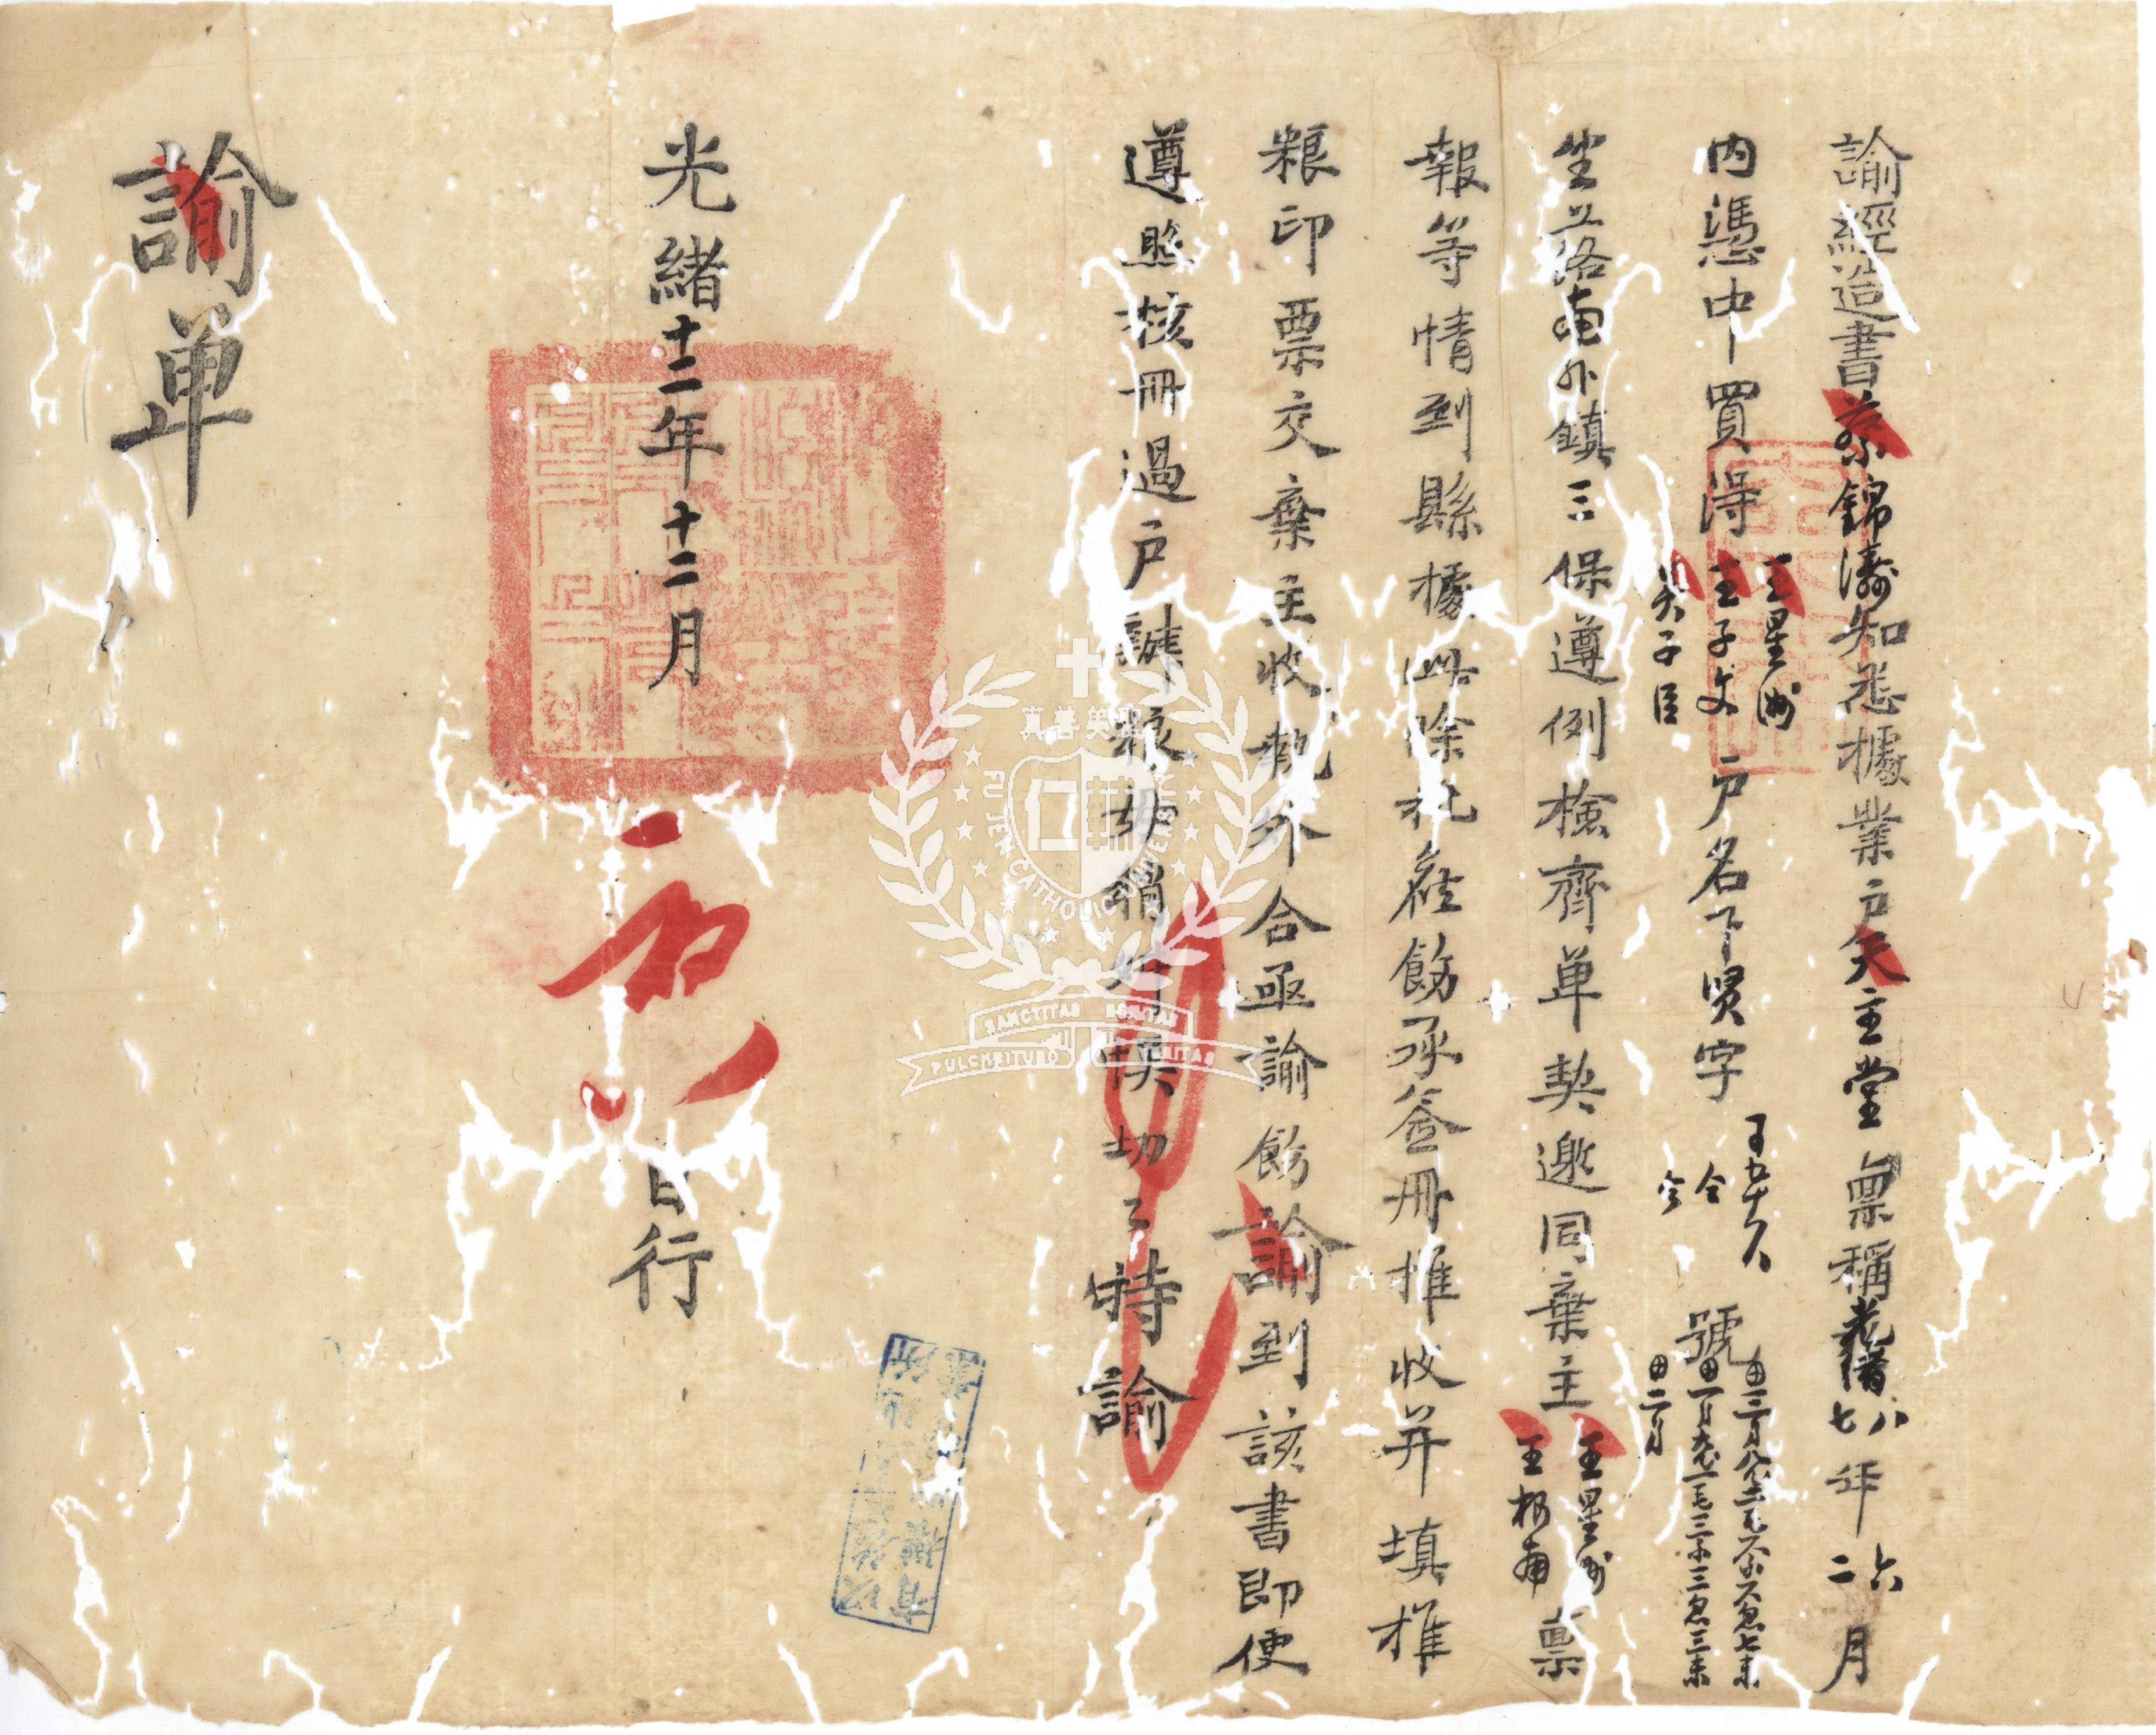 諭經造書蔡錦濤知悉據業户天主堂稟稱光緒八七年六二月
內憑中買得王星洲王子文吳子臣户名下賢字
仝
仝
號
田二月
坐落南外鎮三保遵例檢齊单契邀同棄主王星洲王松甫稟
報等情到縣據此除批在飭承簽冊推收并填推
粮印票交棄主收執外合亟諭飭諭到該書即便
遵照核冊過户辦粮毋稍片悞切之特諭
光緒十二年十二月
日行
諭单
真善美聖
FU JEN CATHOLIC UNIVERSITY
SANCTITAS BONITAS
PULCHRITUDO VERITAS